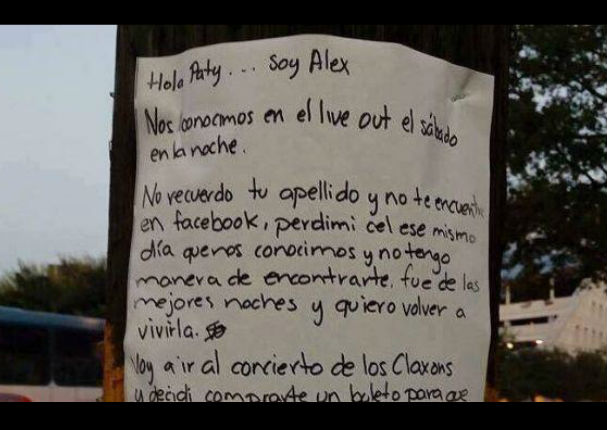 Hola Paty... soy Alex
Nos conocimos en el live out el sábado
en la noche.
No recuerdo tu apellido y no te encuentro
en facebook, perdi mi cel ese mismo
día que nos conocimos y no tengo
manera de encontrarte, fue de las
mejores noches y quiero volver a
vivirla.
Voy a ir al concierto de los Claxons
y decidi comprarte un boleto para que